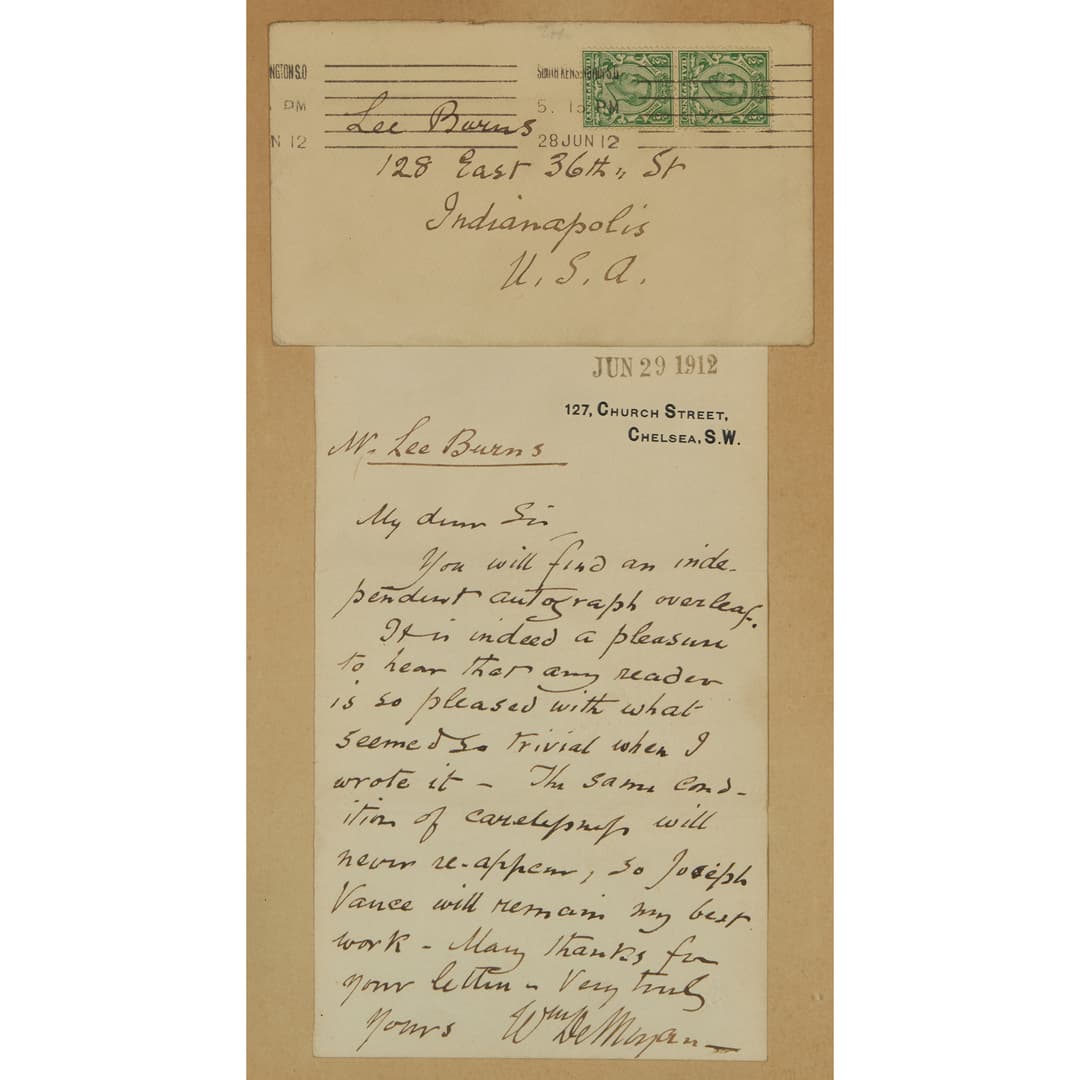 NGTON S.O
SOUTH KENSINGTON S.O
PM
5. 15 PM
N 12
28 JUN 12
Lee Burns
128 East 36th,, St
Indianapolis
U. S. A.
JUN 29 1912
127, CHURCH STREET,
CHELSEA, S.W.
Mr. Lee Burns
My dear Sir
You will find an inde-
pendent autograph overleaf.
It is indeed a pleasure
to hear that any reader
is so pleased with what
seemed so trivial when I
wrote it – The same cond-
ition of carelessness will
never re-appear, so Joseph
Vance will remain my best
work – Many thanks for
your letter – Very truly
yours Wm De Morgan